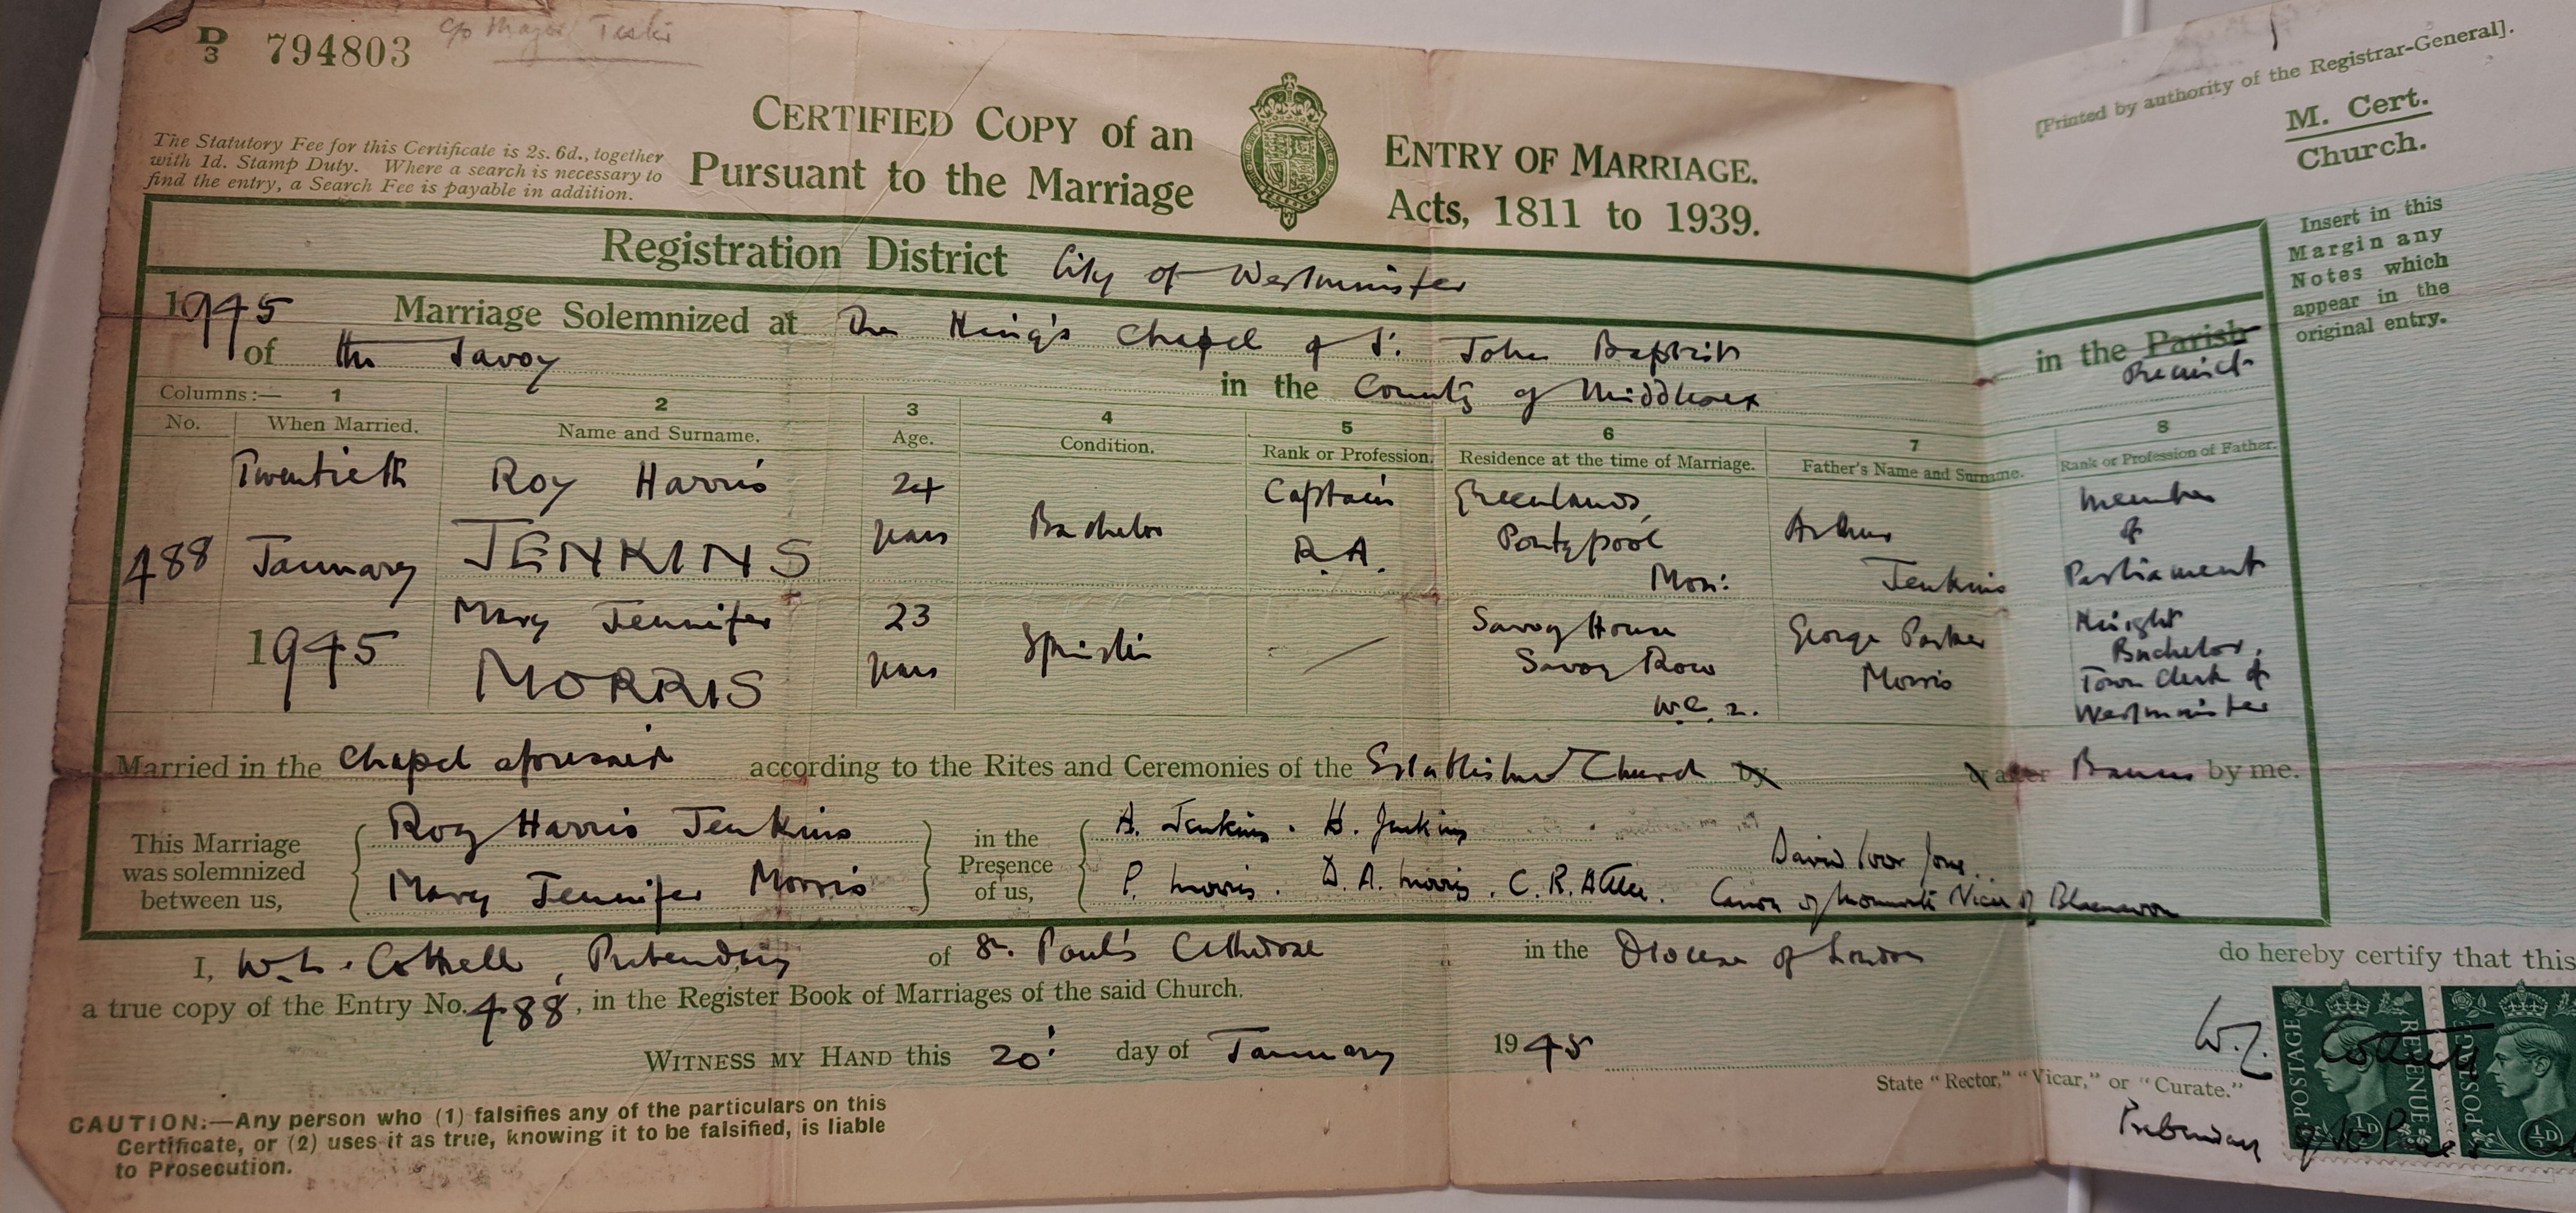 D
3 794803
c/o Major
The Statutory Fee for this Certificate is 2s. 6d., together
with 1d. Stamp Duty. Where a search is necessary to
find the entry, a Search Fee is payable in addition.
CERTIFIED COPY of an ENTRY OF MARRIAGE.
Pursuant to the Marriage Acts, 1811 to 1939.
[Printed by authority of the Registrar-General].
M. Cert.
Church.
Registration District City of Westminster
Insert in this
Margin any
Notes which
appear in the
original entry.
1945 Marriage Solemnized at The King's Chapel of St. John Baptist in the Parish Precinct
of the Savoy in the County of Middlesex
Columns:— 1 2 3 4 5 6 7 8
No. When Married. Name and Surname. Age. Condition. Rank or Profession. Residence at the time of Marriage. Father's Name and Surname. Rank or Profession of Father.
488 Twentieth January 1945
Roy Harris JENKINS 24 years Bachelor Captain R.A. Greenlands, Pontypool Mon: Arthur Jenkins Member of Parliament
Mary Jennifer MORRIS 23 years Spinster — Savoy House Savoy Row W.C.2. George Parker Morris Knight Bachelor, Town Clerk of Westminster
Married in the Chapel aforesaid according to the Rites and Ceremonies of the Established Church by or after Banns by me.
This Marriage
was solemnized
between us,
Roy Harris Jenkins
Mary Jennifer Morris
in the
Presence
of us,
A. Jenkins. H. Jenkins
P. Morris. D. A. Morris. C. R. Attlee.
David Ivor Jones.
Canon of Monmouth Vicar of Blaenavon
I, W. L. Cottrell, Prebendary of St. Paul's Cathedral in the Diocese of London do hereby certify that this
a true copy of the Entry No. 488, in the Register Book of Marriages of the said Church.
WITNESS MY HAND this 20: day of January 1945
W. L. Cottrell
State "Rector," "Vicar," or "Curate."
Prebendary of St Paul's
POSTAGE REVENUE ½D
POSTAGE ½D
CAUTION:—Any person who (1) falsifies any of the particulars on this
Certificate, or (2) uses it as true, knowing it to be falsified, is liable
to Prosecution.